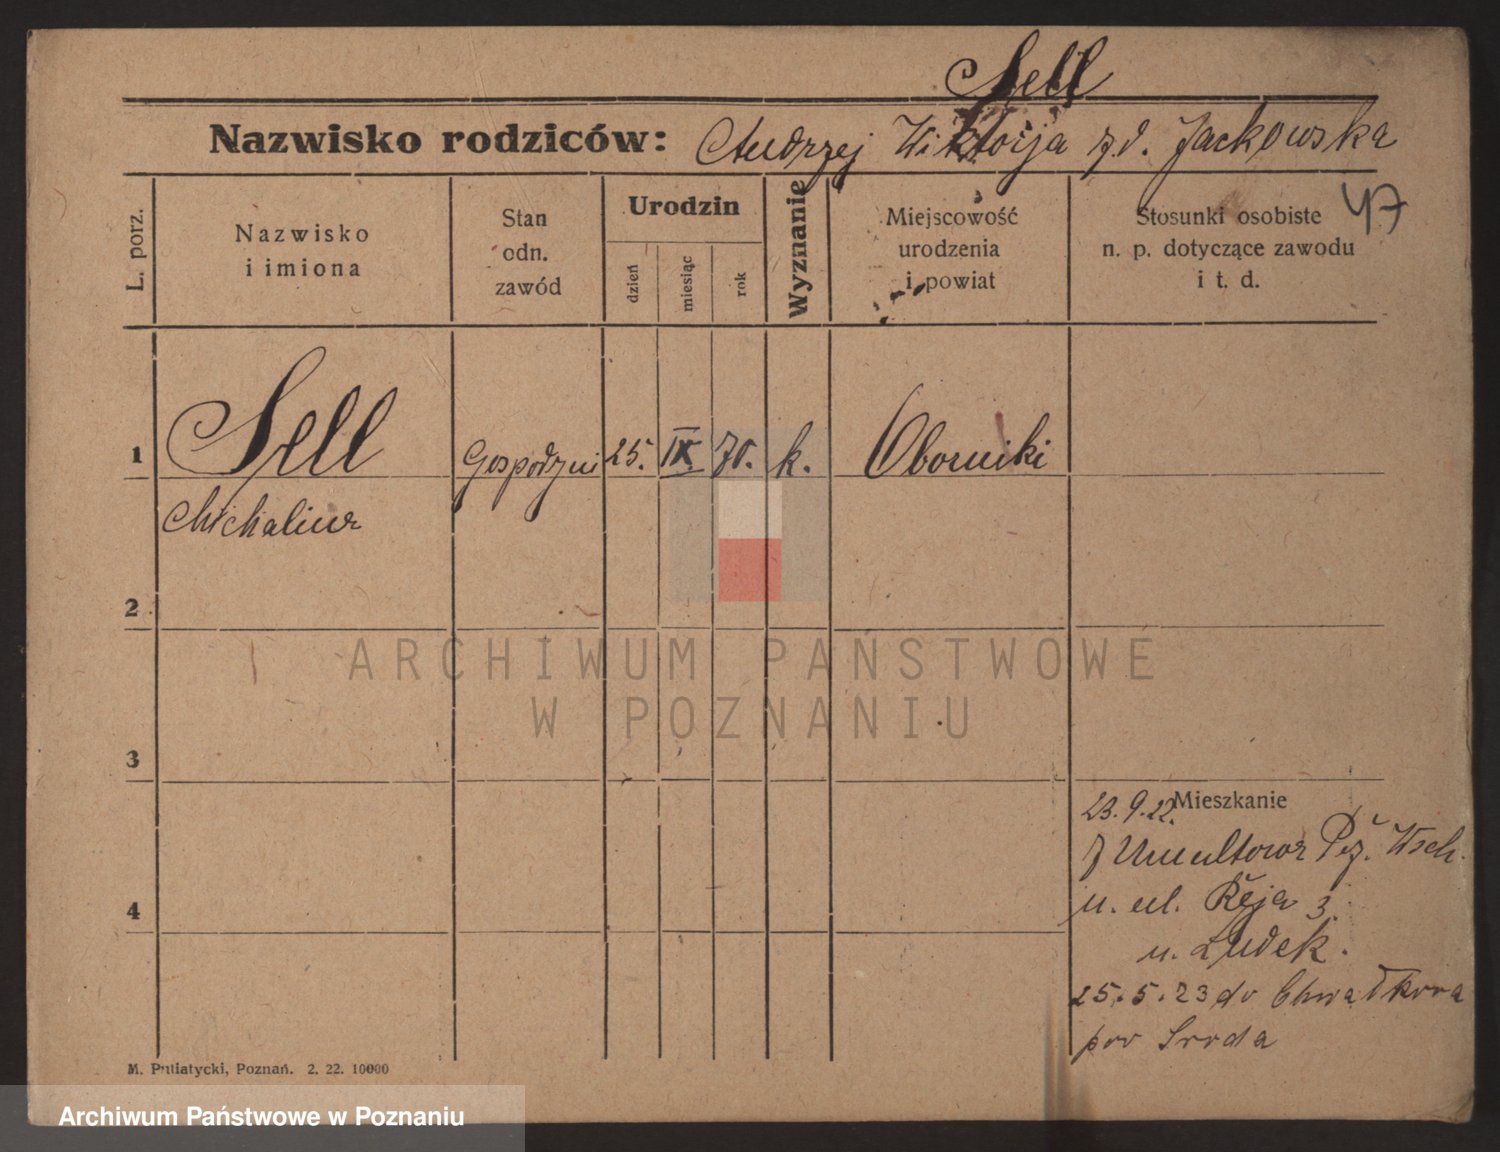 Sell
Nazwisko rodziców: Andrzej Wiktorja z.d. Jackowska
L. porz.
Nazwisko
i imiona
Stan
odn.
zawód
Urodzin
dzień
miesiąc
rok
Wyznanie
Miejscowość
urodzenia
i powiat
Stosunki osobiste
n. p. dotyczące zawodu
i t. d.
47
1
Sell
Michalina
Gospodyni
25.
IX.
70.
k.
Oborniki
2
3
4
Mieszkanie
23.9.22.
z Umultowa Poz. Wsch.
u. ul. Reja 3.
u. Ludek.
25.5.23 do Chwałkowa
pow Sroda
M. Putiatycki, Poznań. 2. 22. 10000
ARCHIWUM PAŃSTWOWE
W POZNANIU
Archiwum Państwowe w Poznaniu